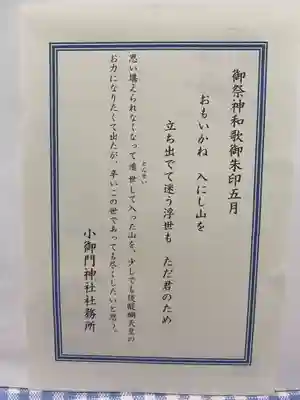 御祭神和歌御朱印五月
おもいかね　入にし山を
立ち出でて迷う浮世も　ただ君のため
思い堪えられなくなって遁世して入った山を、少しでも後醍醐天皇の
とんせい
お力になりたくて出たが、辛いこの世であっても尽くしたいと思う。
小御門神社社務所